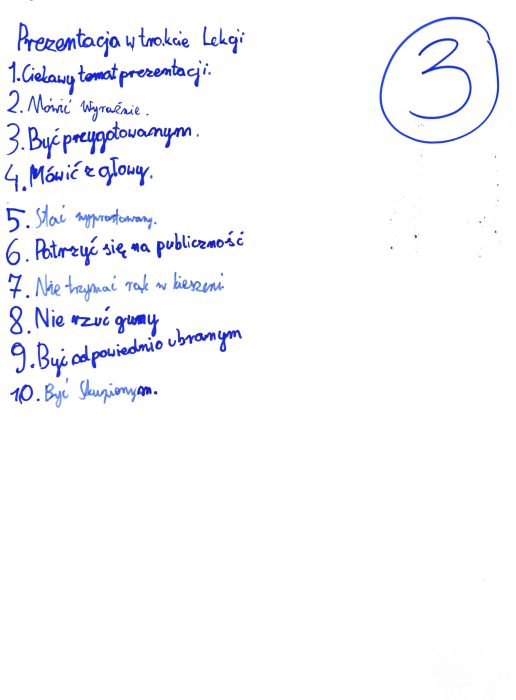 Prezentacja w trakcie Lekcji
3
1. Ciekawy temat prezentacji.
2. Mówić Wyraźnie.
3. Być przygotowanym.
4. Mówić z głowy.
5. Stać wyprostowany.
6. Patrzyć się na publiczność
7. Nie trzymać rąk w kieszeni
8. Nie rzuć gumy
9. Być odpowiednio ubranym
10. Być Skupionym.